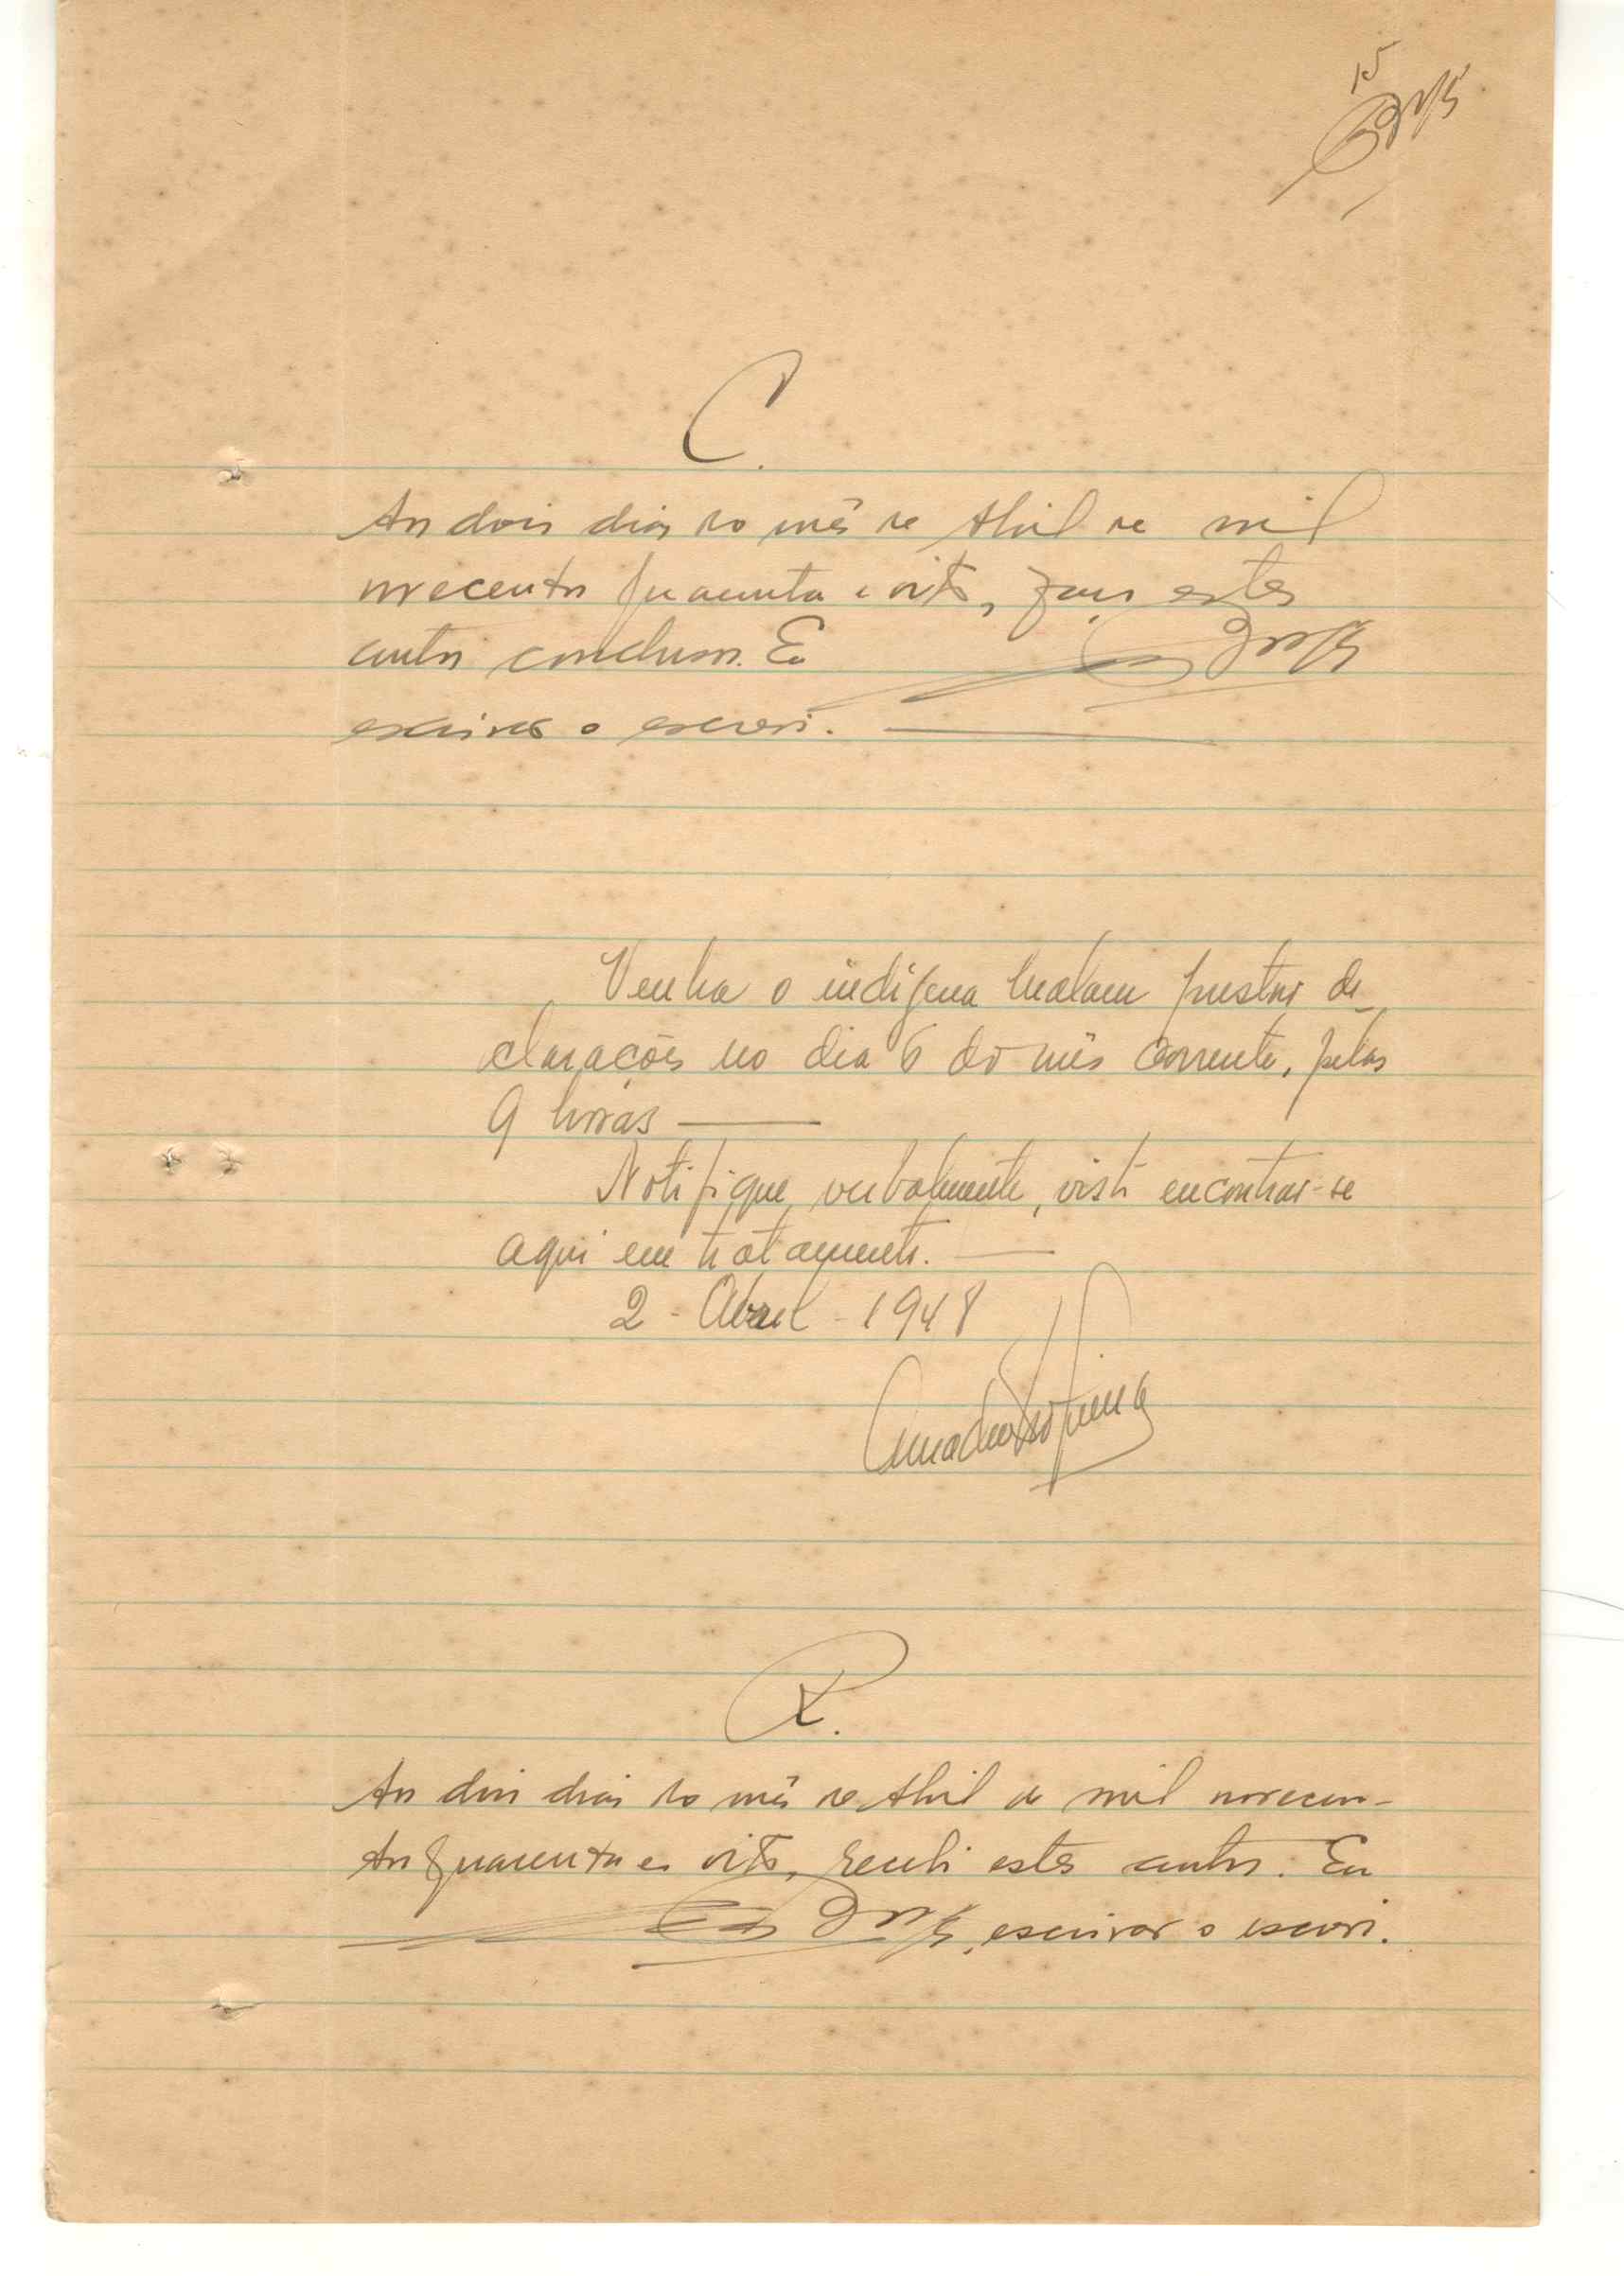 15
C.
Aos dois dias do mês de Abril de mil
novecentos quarenta e oito, faço estes
autos conclusos. Eu
escrivão o escrevi.
Venha o indígena Malam prestar de-
clarações no dia 6 do mês corrente, pelas
9 horas
Notifique verbalmente, visto encontrar-se
aqui em tratamento.
2 - Abril - 1948
R.
Aos dois dias do mês de Abril de mil novecen-
tos quarenta e oito, recebi estes autos. Eu
, escrivão o escrevi.